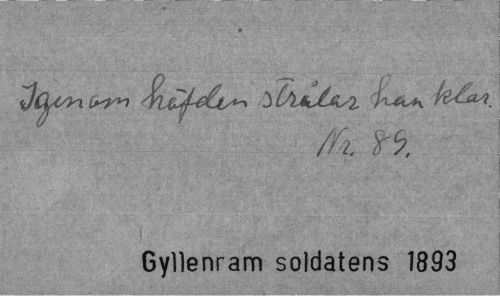 Igenom häfden strålar han klar.
Nr. 89.
Gyllenram soldatens 1893